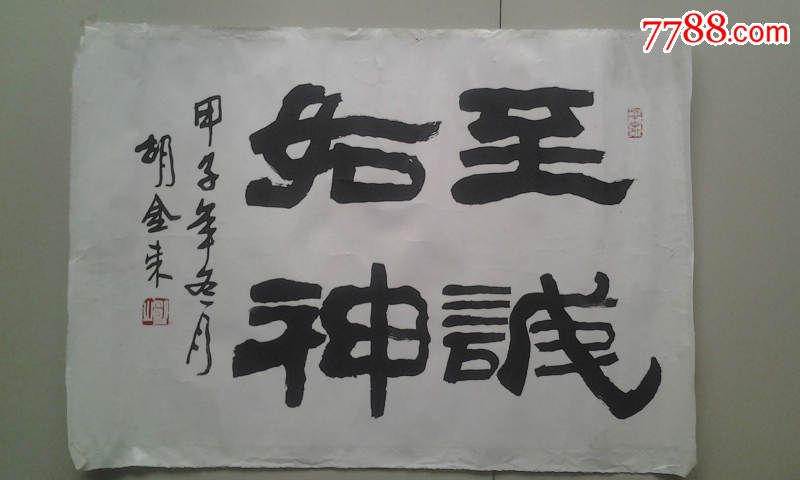 7788.com
至誠
如神
甲子年冬月
胡金来